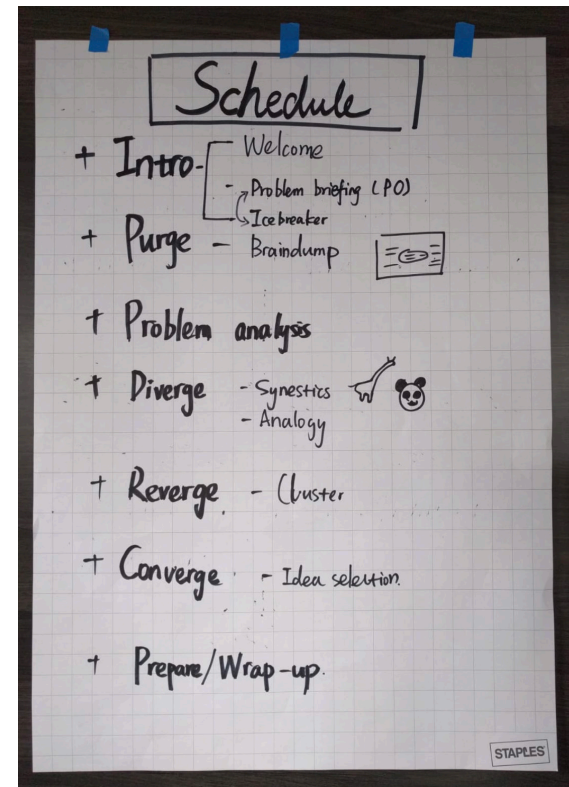 Schedule
+ Intro - Welcome
- Problem briefing (PO)
Icebreaker
+ Purge - Braindump
+ Problem analysis
+ Diverge - Synestics
- Analogy
+ Reverge - Cluster
+ Converge - Idea selection.
+ Prepare/Wrap-up.
STAPLES